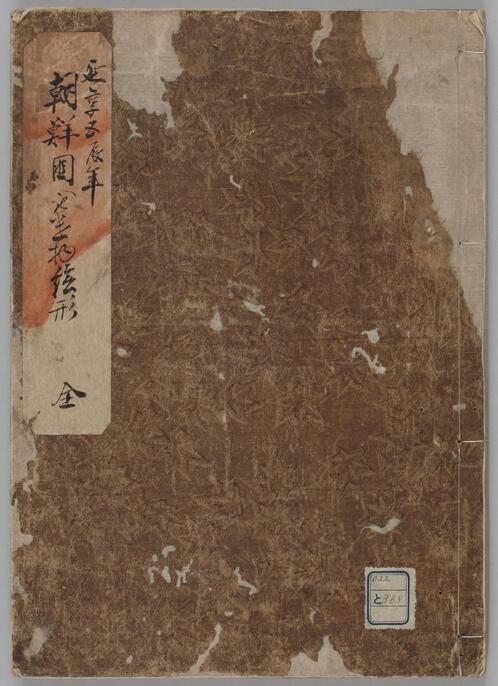 延享五辰年
朝鮮国物絵形 全
022
と368